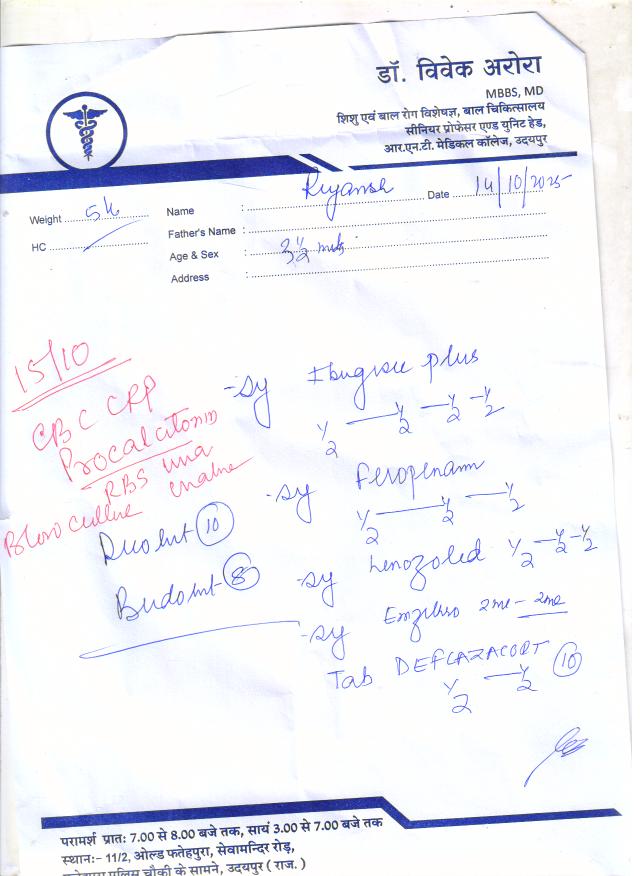 डॉ. विवेक अरोरा
MBBS, MD
शिशु एवं बाल रोग विशेषज्ञ, बाल चिकित्सालय
सीनियर प्रोफेसर एण्ड युनिट हेड,
आर.एन.टी. मेडिकल कॉलेज, उदयपुर
Weight 5k Name : Riyansh Date 14/10/2025
HC Father's Name :
Age & Sex : 3 1/2
Address :
15/10
CBC CRP
Procalcitonin
RBS urea
Blood culture
- sy Ibugesic plus
1/2 — 1/2 — 1/2 - 1/2
- sy Feropenam
1/2 — 1/2 — 1/2
Duolut 10
- sy 1/2 - 1/2 - 1/2
8
- sy 2ml - 2ml
Tab DEFLAZACORT 10
1/2 — 1/2
परामर्श प्रातः 7.00 से 8.00 बजे तक, सायं 3.00 से 7.00 बजे तक
स्थान:- 11/2, ओल्ड फतेहपुरा, सेवामन्दिर रोड़,
पुलिस चौकी के सामने, उदयपुर ( राज. )